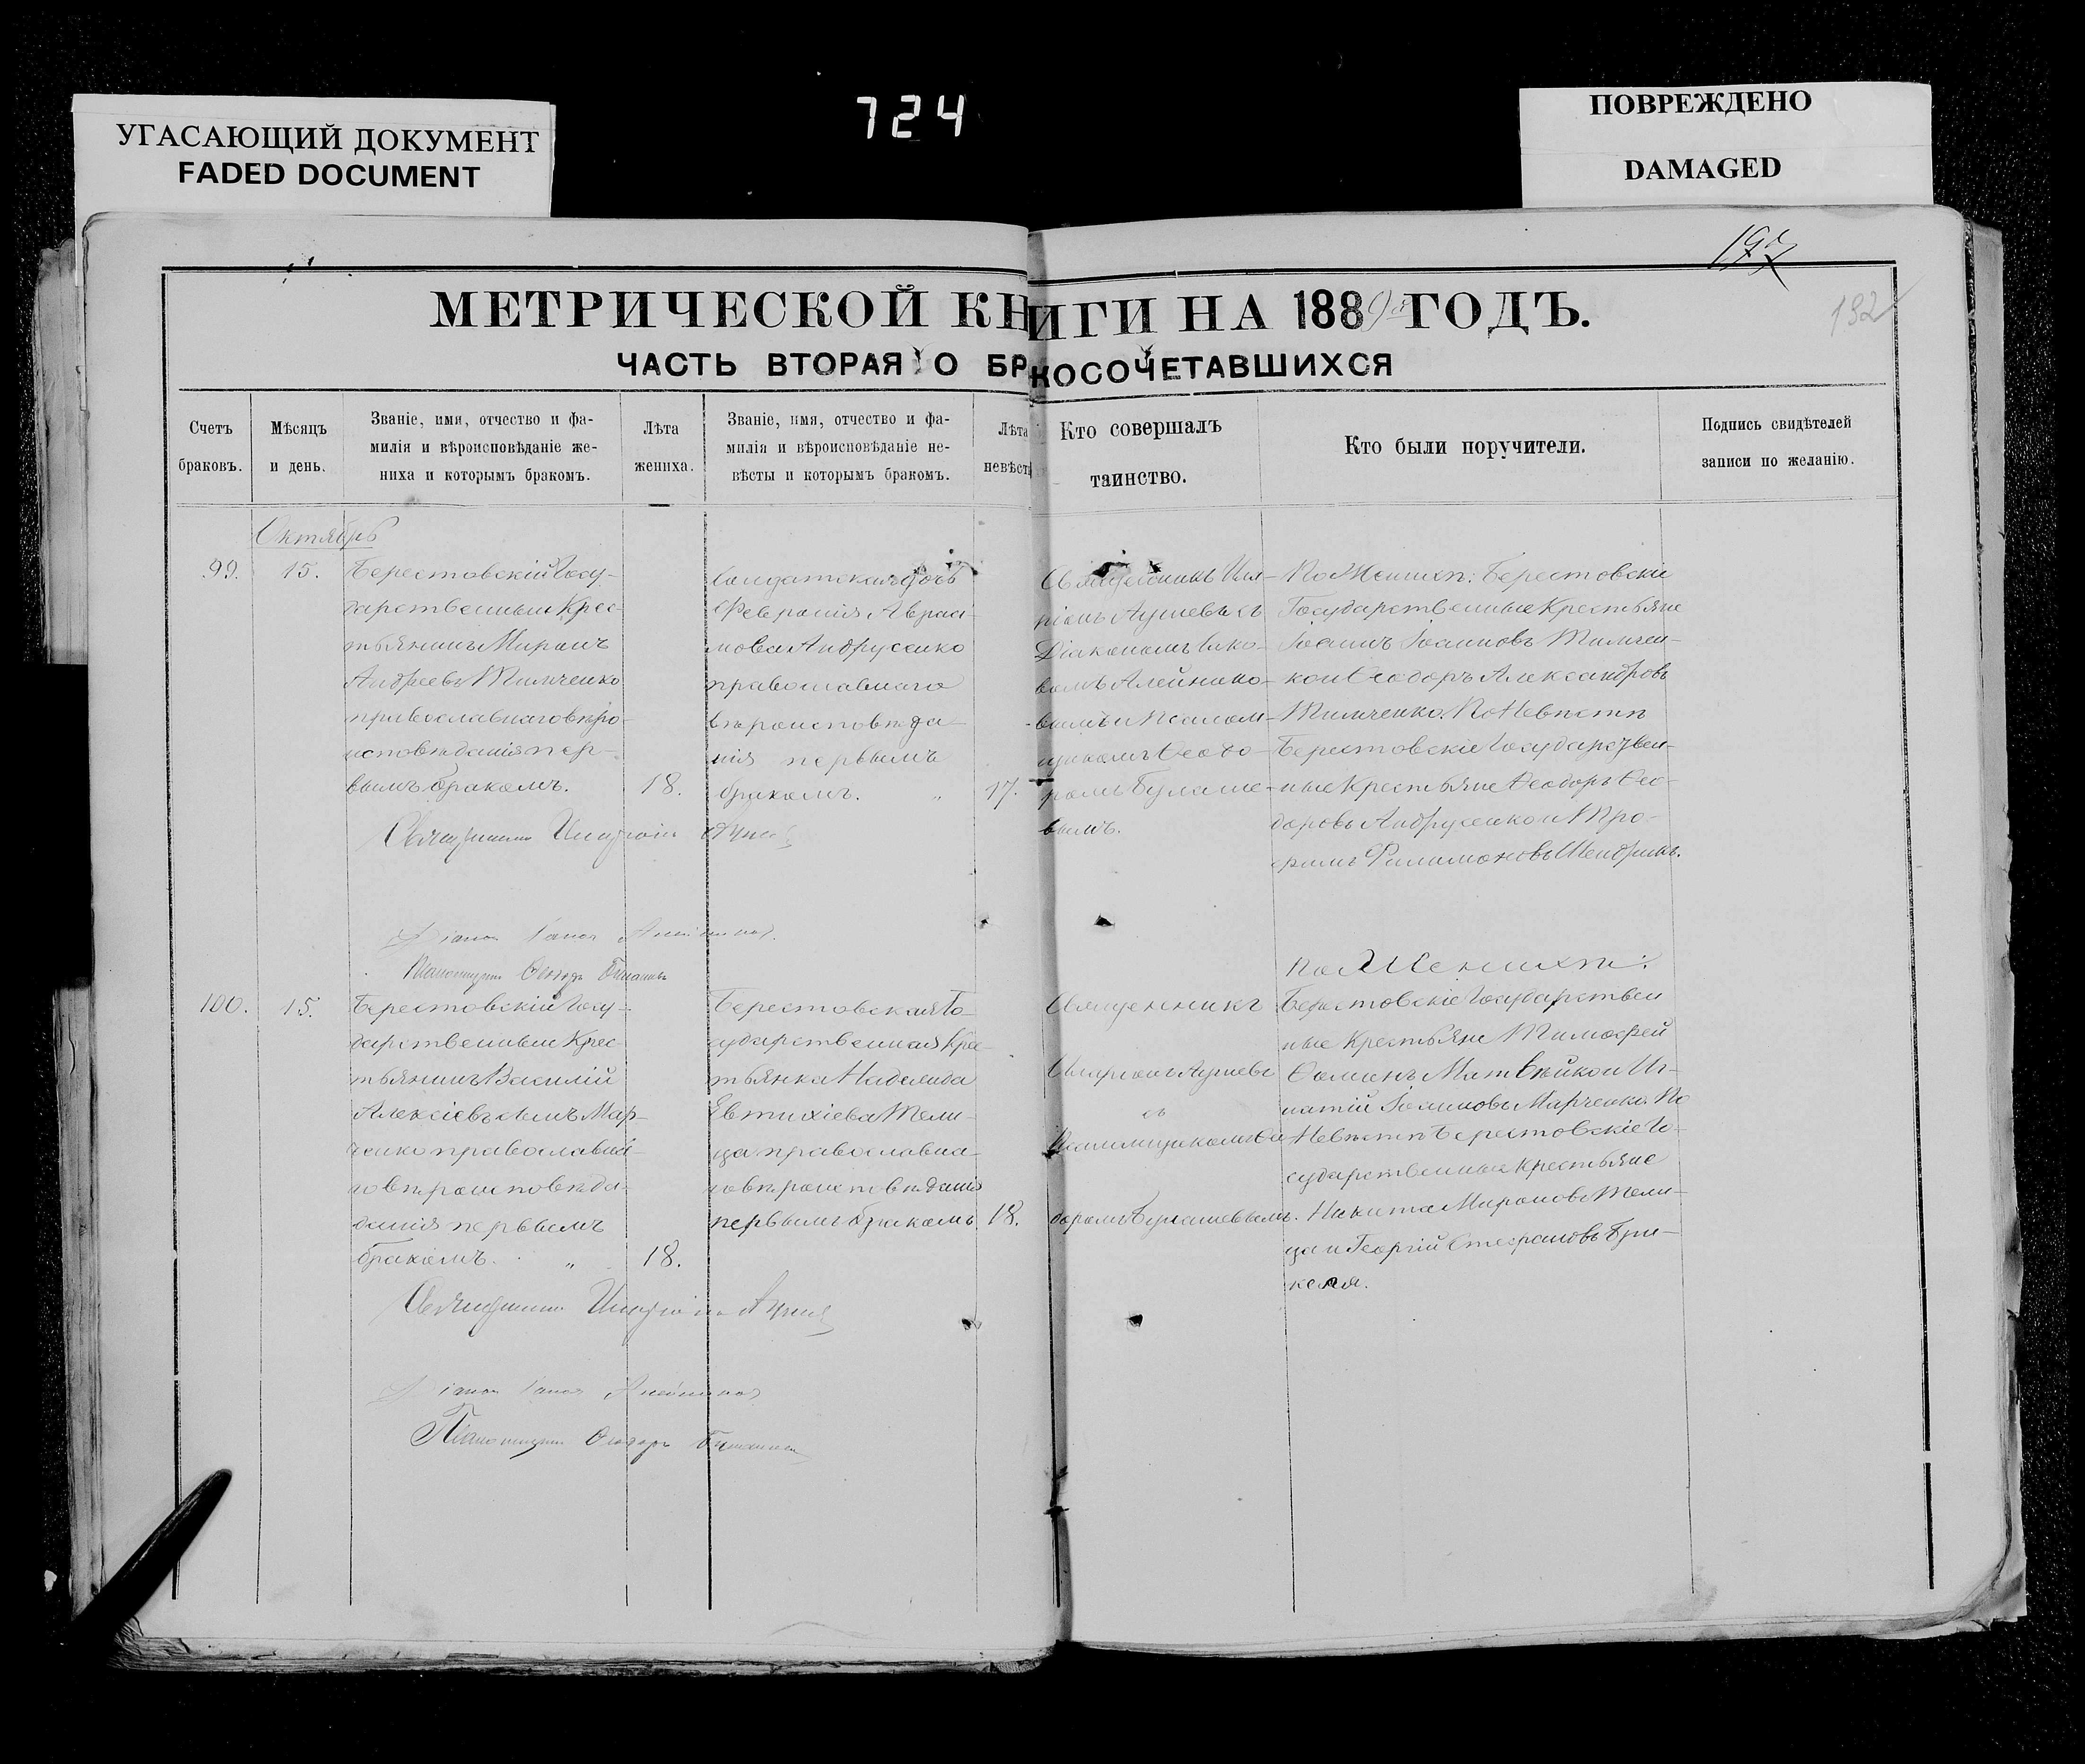 724
УГАСАЮЩИЙ ДОКУМЕНТ
FADED DOCUMENT
ПОВРЕЖДЕНО
DAMAGED
197
192
МЕТРИЧЕСКОЙ КНИГИ НА 1889 ГОДЪ.
ЧАСТЬ ВТОРАЯ О БРАКОСОЧЕТАВШИХСЯ
Счетъ браковъ.
Мѣсяцъ и день.
Званіе, имя, отчество и фа-
милія и вѣроисповѣданіе же-
ниха и которымъ бракомъ.
Лѣта жениха.
Званіе, имя, отчество и фа-
милія и вѣроисповѣданіе не-
вѣсты и которымъ бракомъ.
Лѣта невѣсты
Кто совершалъ
таинство.
Кто были поручители.
Подпись свидѣтелей
записи по желанію.
Октябрь
99.
15.
Берестовскій Госу-
дарственный Крес-
тьянинъ Миронъ
Андреевъ Тимченко
православнаго вѣро-
исповѣданія пер-
вымъ бракомъ.
18.
Солдатская дочь
Февронія Авраа-
мова Андрусенко
православнаго
вѣроисповѣда-
нія первымъ
бракомъ. „
17.
Священникъ Ила-
ріонъ Ауліевъ съ
Діакономъ Іако-
вомъ Алейнико-
вымъ и Псалом-
щикомъ Ѳеодо-
ромъ Булаше-
вымъ.
По Женихѣ: Берестовскіе
Государственные Крестьяне
Іоаннъ Іоанновъ Тимчен-
ко и Ѳеодоръ Александровъ
Тимченко. По Невѣстѣ
Берестовскіе Государствен-
ные Крестьяне Ѳеодоръ Ѳео-
доровъ Андрусенко и Тро-
фимъ Филимоновъ Шендрикъ.
Священникъ Иларіонъ
Діаконъ Іаковъ Алейниковъ
Псаломщикъ Ѳеодоръ Булашевъ
100.
15.
Берестовскій Госу-
дарственный Крес-
тьянинъ Василій
Алексіевъ сынъ Мар-
ченко православна-
го вѣроисповѣда-
данія первымъ
бракомъ. „
18.
Берестовская Го-
сударственная Крес-
тьянка Надежда
Евтихіева Тели-
ца православна-
го вѣроисповѣданія
первымъ бракомъ
18.
Священникъ
Иларіонъ Ауліевъ
съ
Псаломщикомъ Ѳео-
доромъ Булашевымъ.
По Женихѣ:
Берестовскіе Государствен
ные Крестьяне Тимофей
Ѳоминъ Матвѣйко и Иг-
натій Іоанновъ Марченко. По
Невѣстѣ Берестовскіе Го-
сударственные Крестьяне
Никита Мироновъ Тели-
ца и Георгій Стефановъ Бри-
келя.
Священникъ Иларіонъ
Діаконъ Іаковъ Алейниковъ
Псаломщикъ Ѳеодоръ Булашевъ